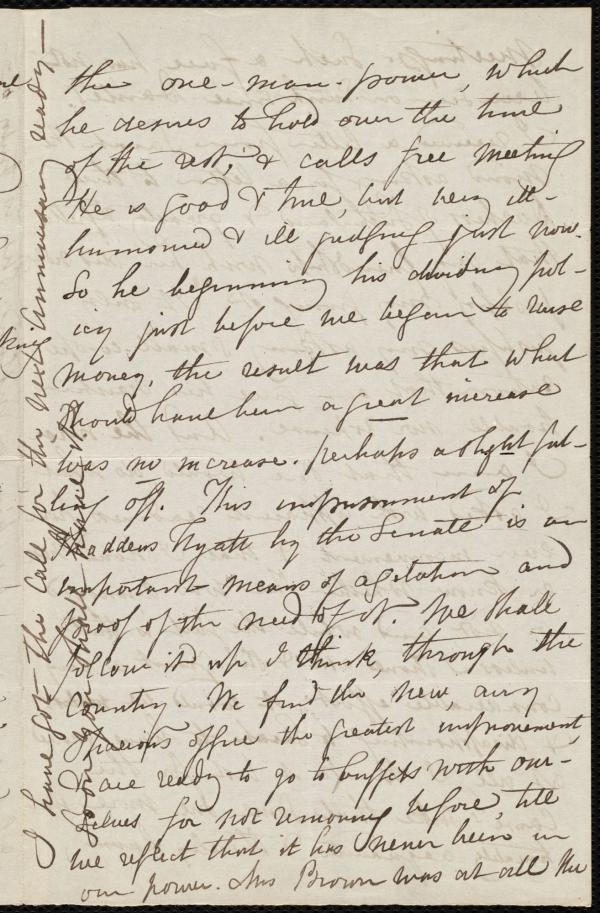 the one-man-power, which
he desires to hold over the time
of the rest, & calls free meeting
He is good & true, but very ill-
humored & ill judging just now.
So he beginning his dividing pol-
icy just before we began to raise
money, the result was that what
should have been a great increase
was no increase. perhaps a slight fal-
ling off. This imprisonment of
Thaddeus Hyatt by the Senate is an
important means of agitation and
proof of the need of it. We shall
follow it up I think, through the
Country. We find the new, airy
Spacious office the greatest improvement,
& are ready to go to buffets with our-
selves for not removing before, till
we reflect that it has never been in
our power. Mrs Brown was at all the
I have got the Call for the next Anniversary ready—
So on you shall have it.